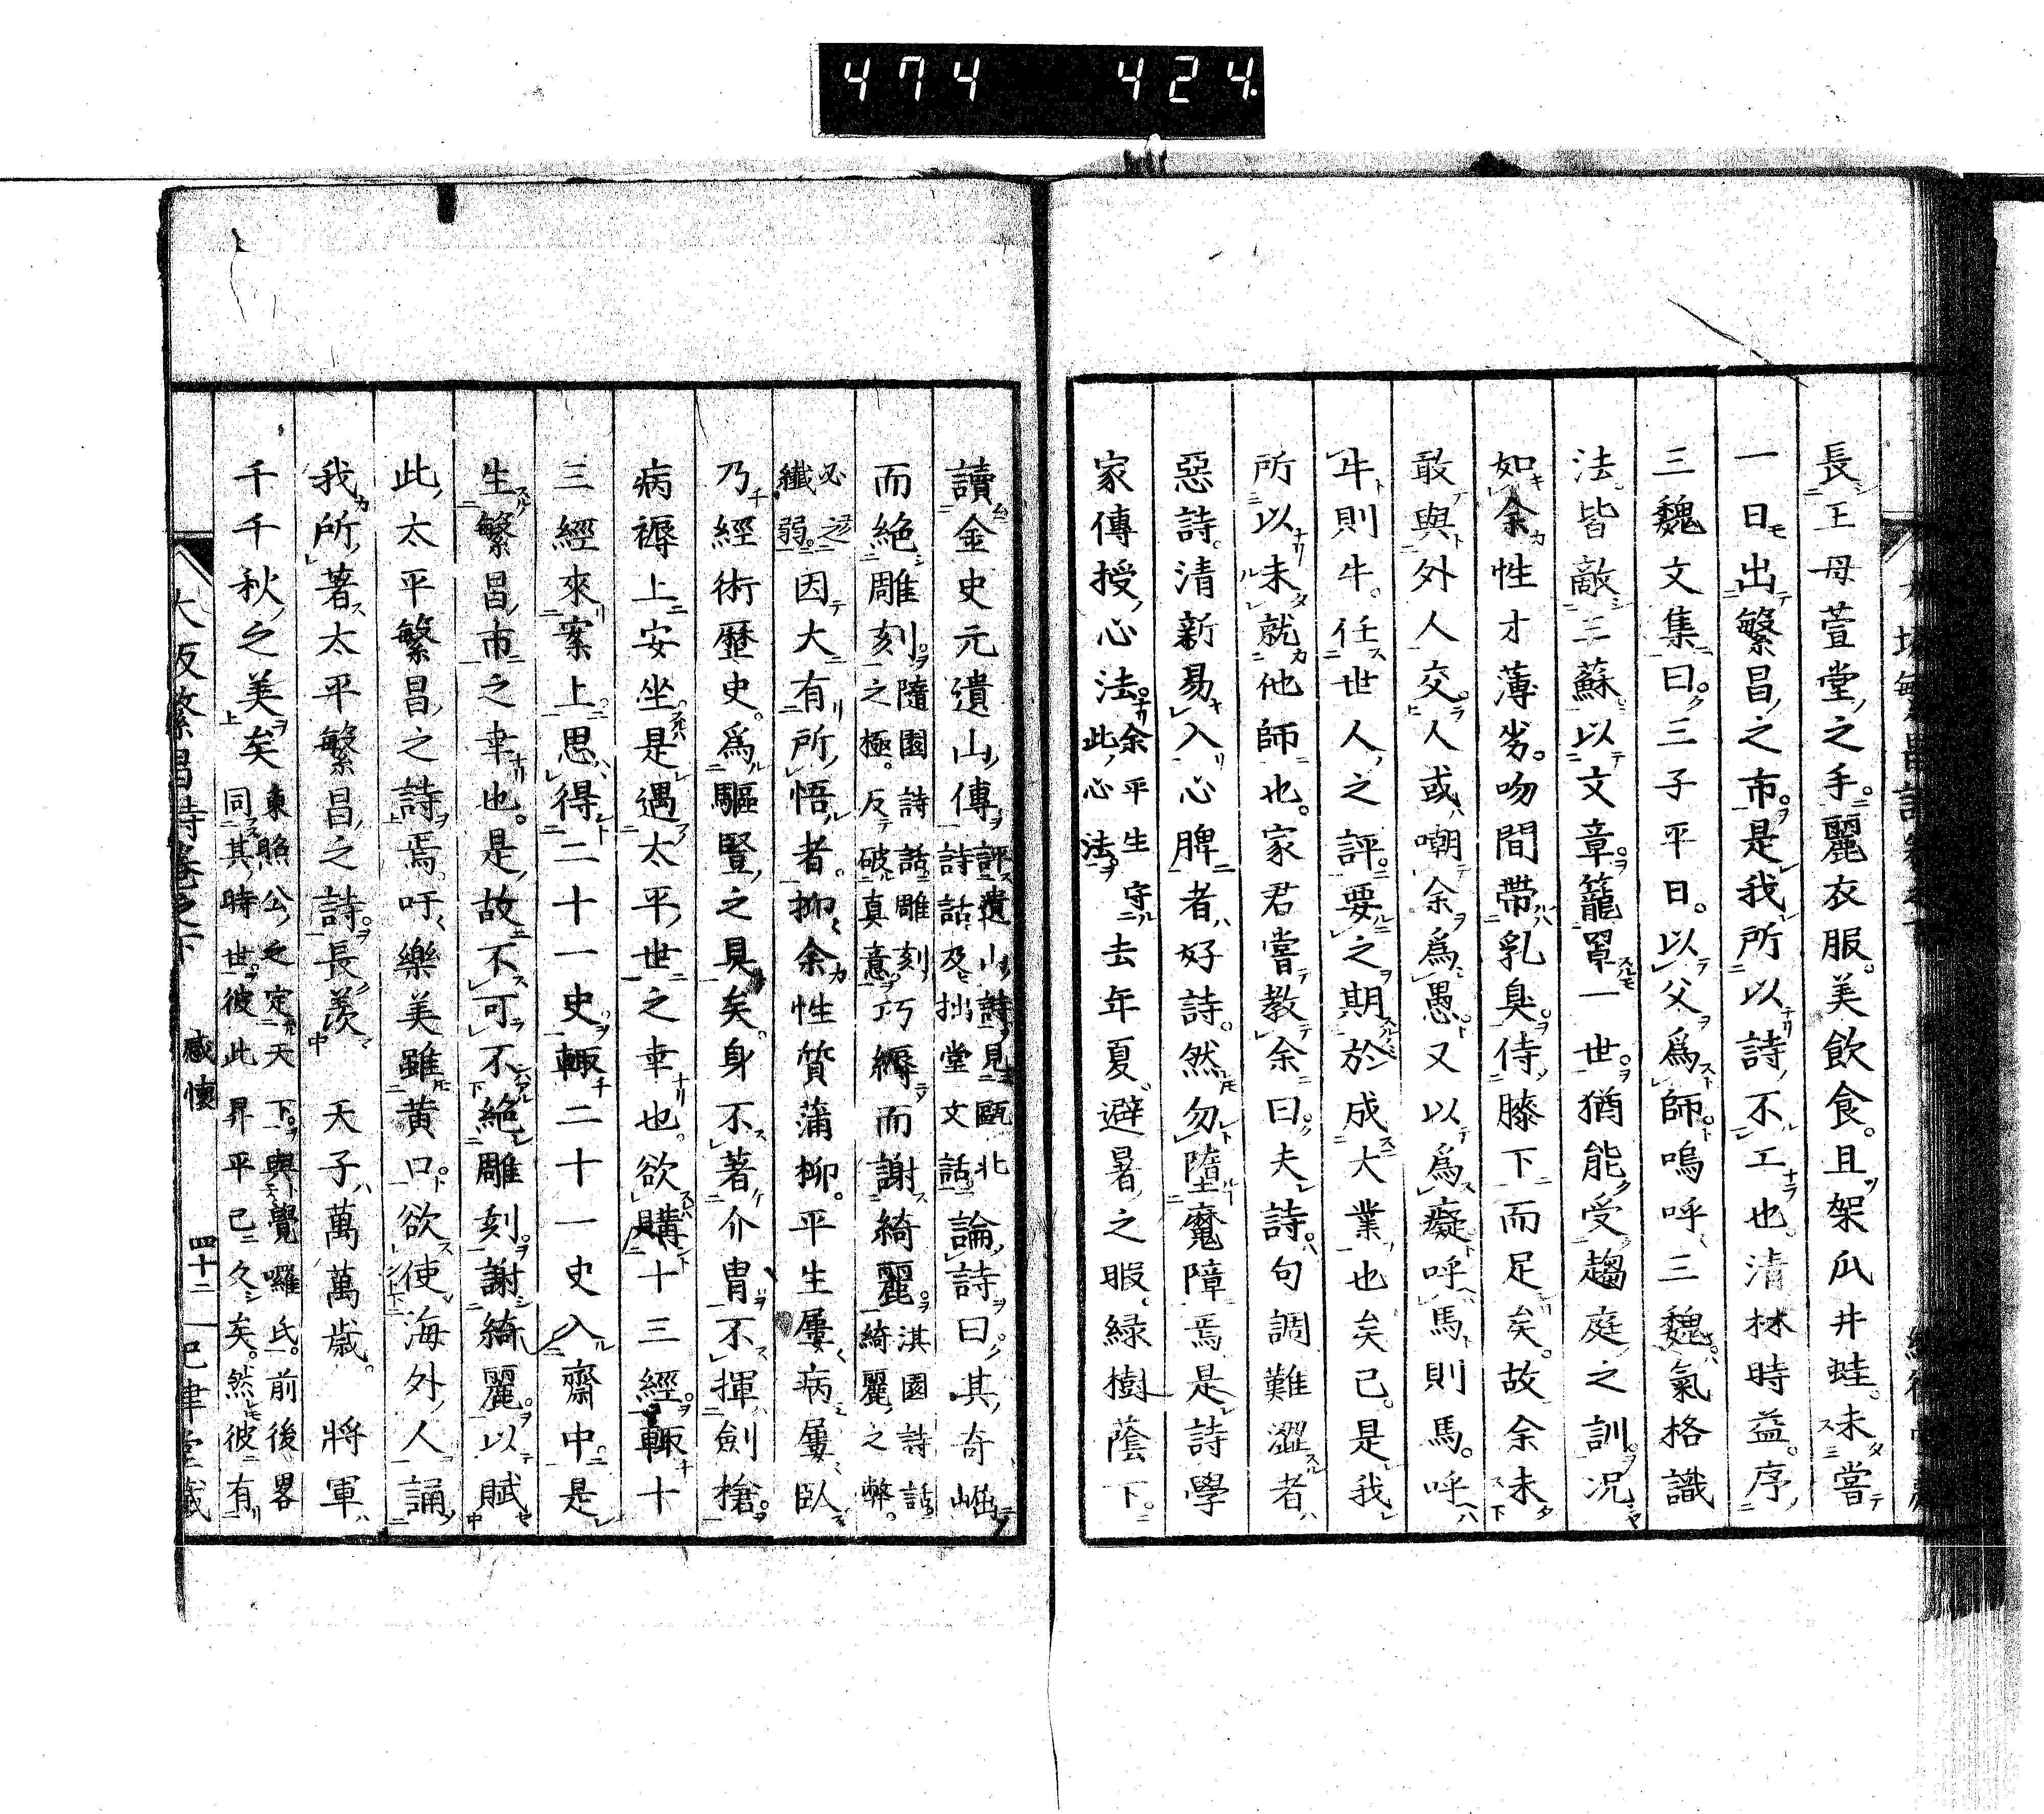 474 424.
長王母萱堂之手麗衣服。美飲食。且架瓜井蛙。未嘗
一日出繁昌之市。是我所以詩不工也。清林時益。序
三魏文集曰。三子平日。以父爲師。嗚呼三魏氣格識
法。皆敵三蘇以文章籠罩一世。猶能受趨庭之訓。況
如余性才薄劣。吻間帶乳臭。侍膝下而足矣。故余未
敢與外人交。人或嘲余爲愚。又以爲癡。呼馬則馬。呼
牛則牛。任世人之評。要之期於成大業也矣已。是我
所以未就他師也。家君嘗教余曰。夫詩句調難澀者
惡詩。清新易入心脾者好詩。然勿墮魔障焉是詩學
家傳授心法。余平生守此心法去年夏避暑之暇。緑樹蔭下。
讀金史元遺山傳評遺山詩見甌北詩話及拙堂文話論詩曰。其奇崛
而絶雕刻。隨園詩話雕刻之極。反破真意。巧縟而謝綺麗。淇園詩話綺麗之弊。
必之纖弱。因大有所悟者。抑余性質蒲柳。平生屢病屢臥
乃經術歷史。爲驅豎之具矣。身不著介冑。不揮劍槍。
病褥上安坐是遇太平世之幸也。欲購十三經。輙十
三經來案上。思得二十一史。輙二十一史入齋中。是
生繁昌市之幸也。是故不可不絶雕刻。謝綺麗。以賦
此太平繁昌之詩焉。吁樂美雖黄口。欲使海外人誦
我所著太平繁昌之詩。長羨 天子萬萬歲。 將軍
千千秋之美矣東照公之定天下。與覺囉氏。前後畧同其時世。彼此昇平已久矣。然彼有
大坂繁昌詩卷之下 感懷 四十二